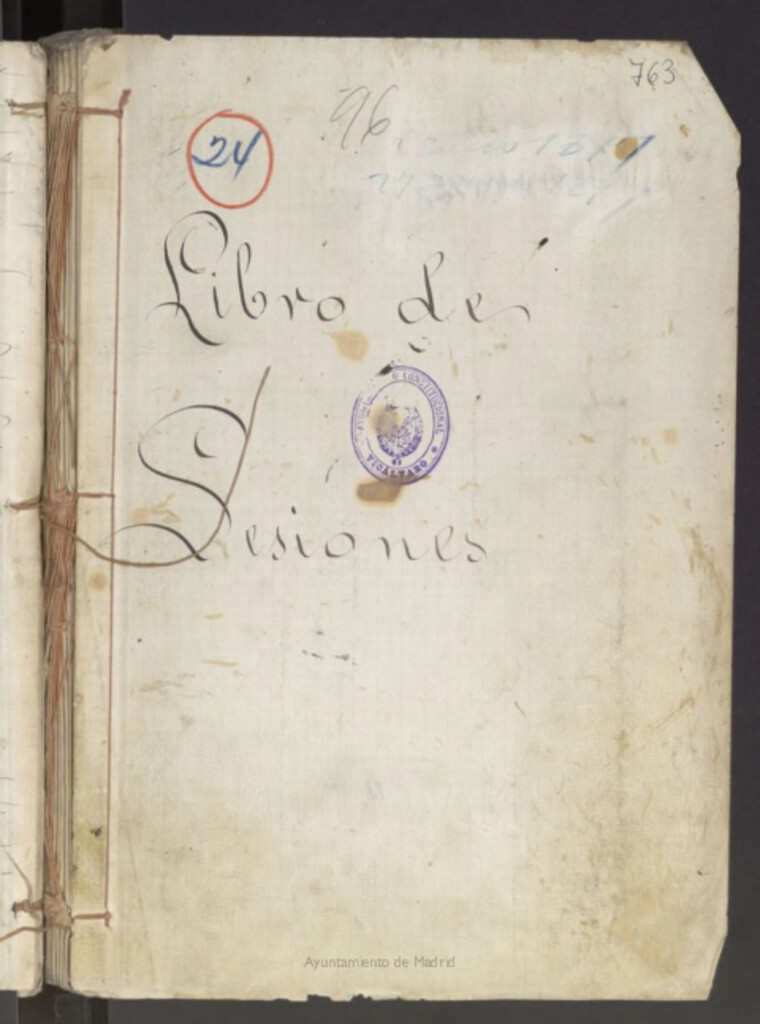 763
96
24
Libro de
CONSTITUCIONAL
VICALVARO
Sesiones
Ayuntamiento de Madrid